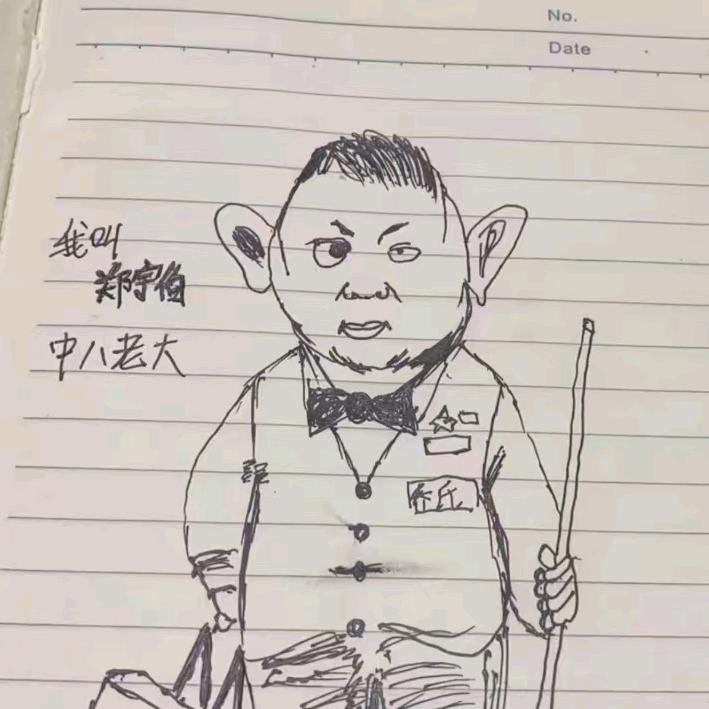 No.
Date
我叫
郑宇伯
中八老大
乔氏